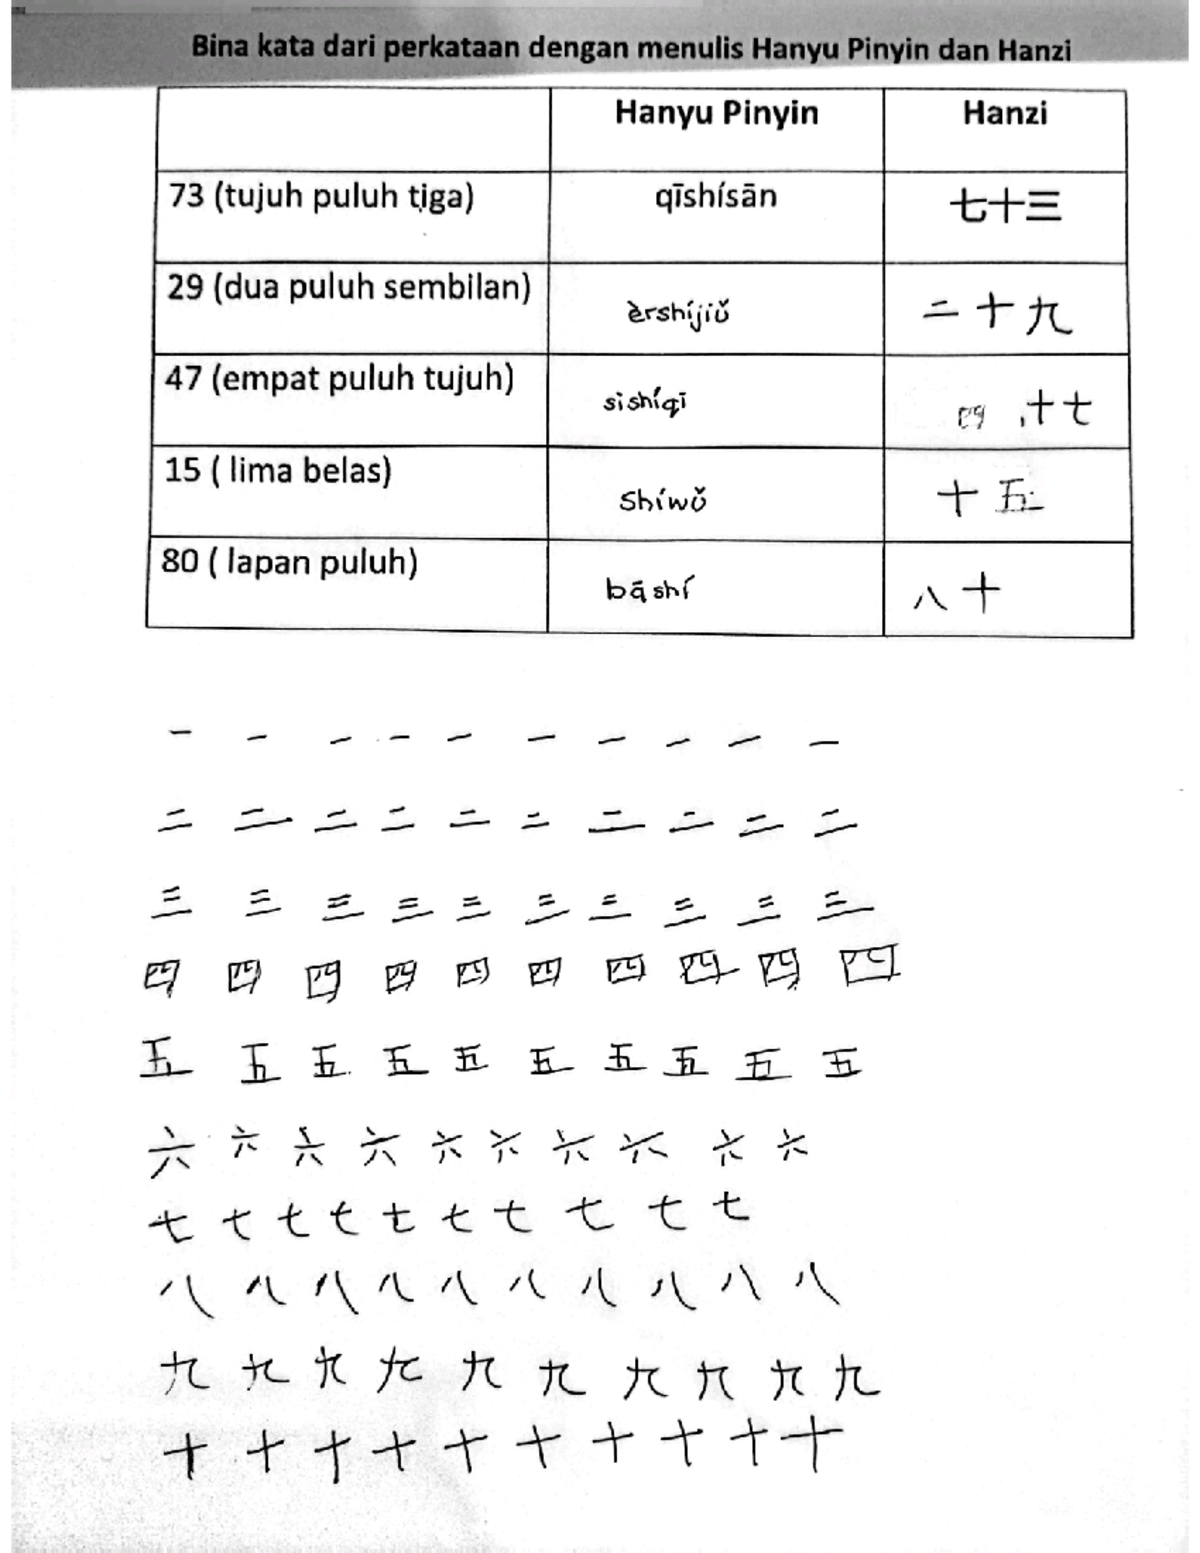 Bina kata dari perkataan dengan menulis Hanyu Pinyin dan Hanzi
Hanyu Pinyin Hanzi
73 (tujuh puluh tiga) qīshísān 七十三
29 (dua puluh sembilan) èrshíjiǔ 二十九
47 (empat puluh tujuh) sìshíqī 四十七
15 ( lima belas) shíwǔ 十五
80 ( lapan puluh) bāshí 八十
一 一 一 一 一 一 一 一 一 一
二 二 二 二 二 二 二 二 二 二
三 三 三 三 三 三 三 三 三 三
四 四 四 四 四 四 四 四 四 四
五 五 五 五 五 五 五 五 五 五
六 六 六 六 六 六 六 六 六 六
七 七 七 七 七 七 七 七 七 七
八 八 八 八 八 八 八 八 八 八
九 九 九 九 九 九 九 九 九 九
十 十 十 十 十 十 十 十 十 十